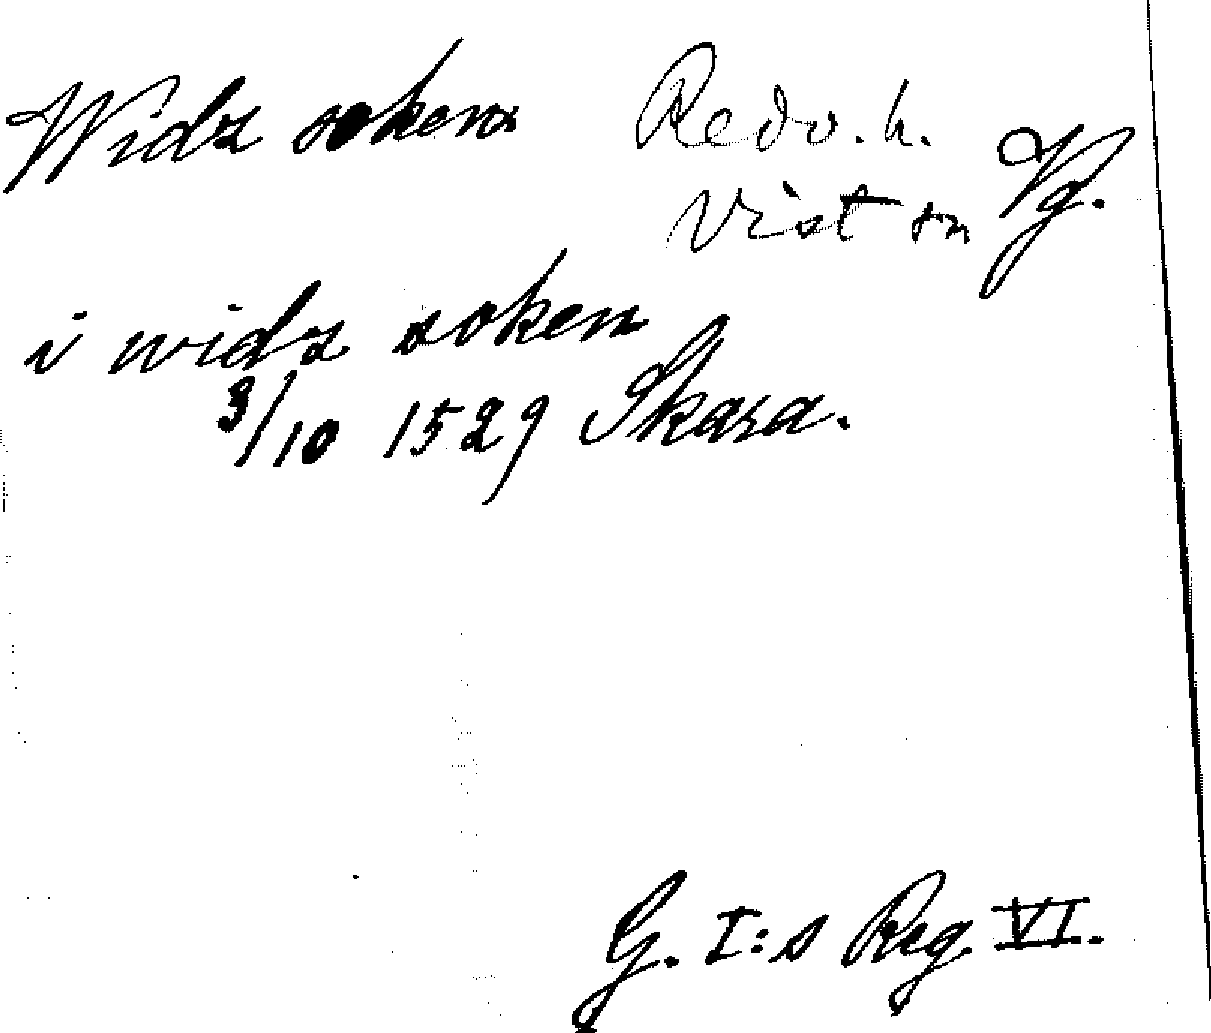 Widz soken Redv. h. Vg.
Vist sn
i widz soken
3/10 1529 Skara.
G. I:s Reg. VI.